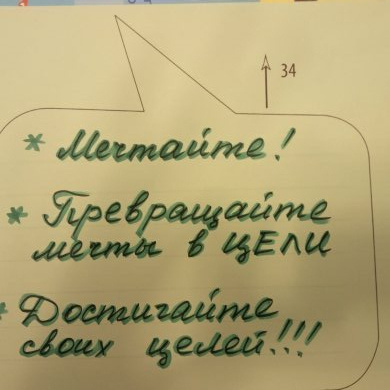 34
* Мечтайте!
* Превращайте
мечты в ЦЕЛИ
* Достигайте
своих целей!!!